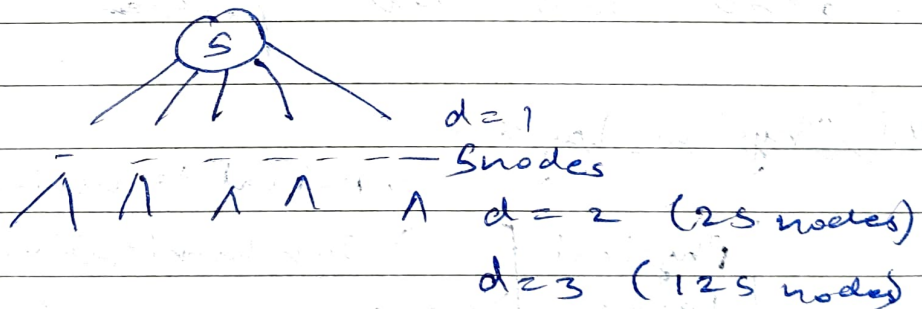 S
d = 1
5nodes
d = 2 (25 nodes)
d = 3 (125 nodes)